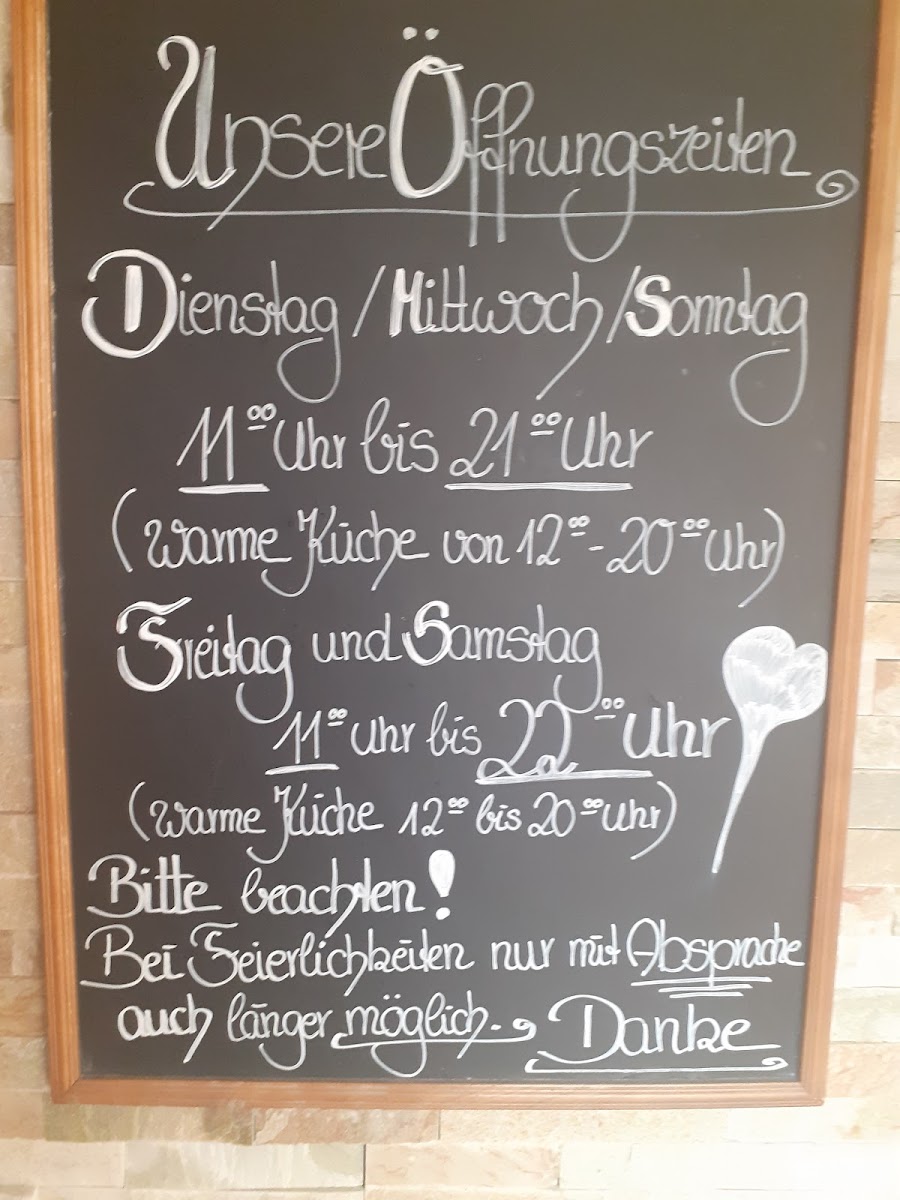 Unsere Öffnungszeiten
Dienstag / Mittwoch / Sonntag
11⁰⁰ Uhr bis 21⁰⁰ Uhr
(Warme Küche von 12⁰⁰ - 20⁰⁰ Uhr)
Freitag und Samstag
11⁰⁰ Uhr bis 22⁰⁰ Uhr
(Warme Küche 12⁰⁰ bis 20⁰⁰ Uhr)
Bitte beachten!
Bei Feierlichkeiten nur mit Absprache
auch länger möglich. Danke